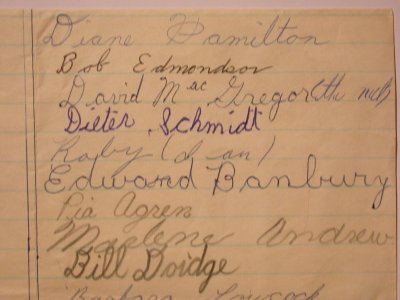 Diane Hamilton
Bob Edmondson
David Mac Gregor (the
Dieter Schmidt
Roby (d an)
Edward Banbury
Pia Agren
Marlene Andrew
Bill Doidge
Barbara